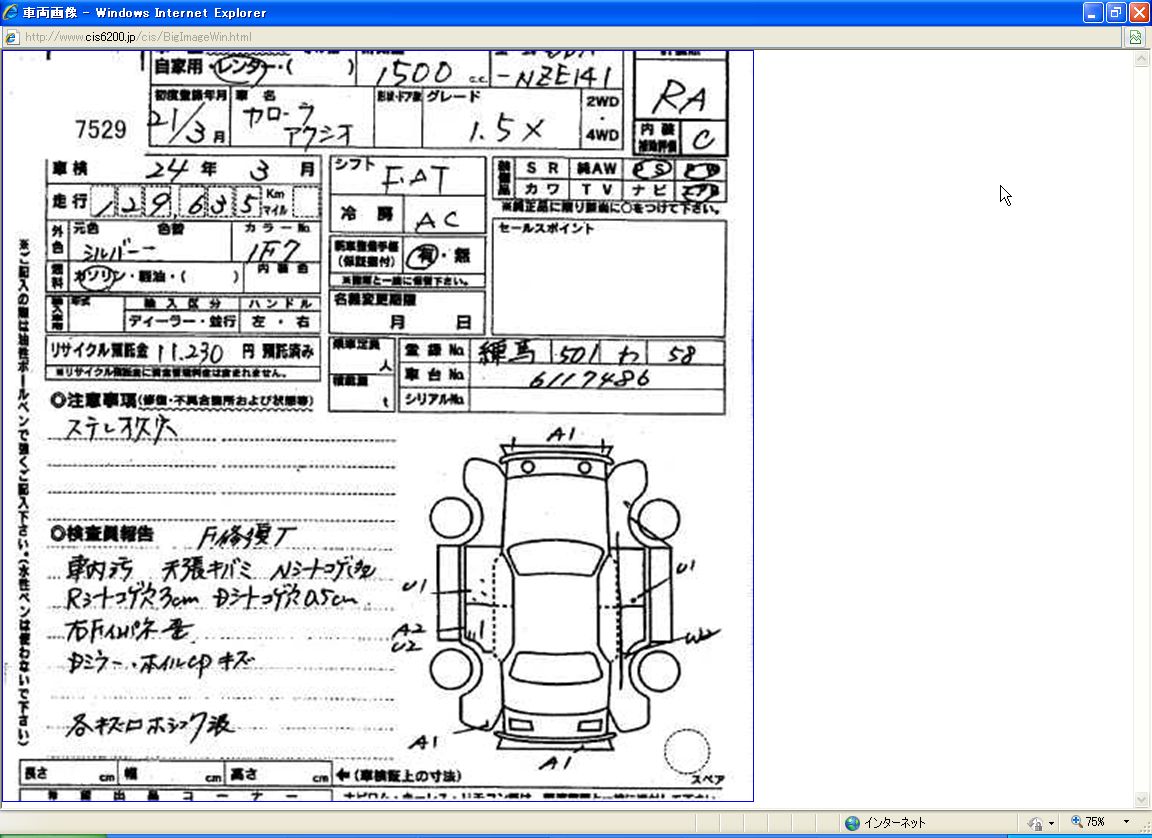 車両画像 - Windows Internet Explorer
http://www.cis6200.jp/cis/BigImageWin.html
自家用・レンタ・( ) 1500 c.c. -NZE141
7529 初度登録年月 車名 形状・ドア数 グレード 2WD・4WD RA
21/3月 カローラ アクシオ 1.5X 内装 C
車検 24年 3月 シフト FAT SR 純AW PS PW
走行 129,635 Km マイル 冷房 AC カワ TV ナビ エアB
※純正品に限り該当に○をつけて下さい。
外色 元色 色替 カラーNo
シルバー 1F7 (保証書付) 有・無 セールスポイント
燃料 ガソリン・軽油・( ) 内装色 ※書類と一緒に保管下さい。
輸入車用 年式 輸入区分 ハンドル 名義変更期限
ディーラー・並行 左・右 月 日
リサイクル預託金 11,230 円 預託済み 乗車定員 人 登録No. 練馬 501 わ 58
※リサイクル預託金に資金管理料金は含まれません。 積載量 t 車台No. 6117486
シリアルNo.
◎注意事項(修復・不具合箇所および状態等)
ステレオ欠穴
A1
◎検査員報告 F修復
車内汚 天張キバミ Nシートコゲ
Rシートコゲ穴3cm Dシートコゲ穴0.5cm
U1 U1
右Fインパネ
A2
U2 W2
Dミラー・ホイルcpキズ
各キズ
A1
A1
スペア
長さ cm 幅 cm 高さ cm ←(車検証上の寸法)
希望出品コーナー
※ご記入の際は油性ボールペンで強くご記入下さい。(水性ペンは使わないで下さい)
インターネット 75%